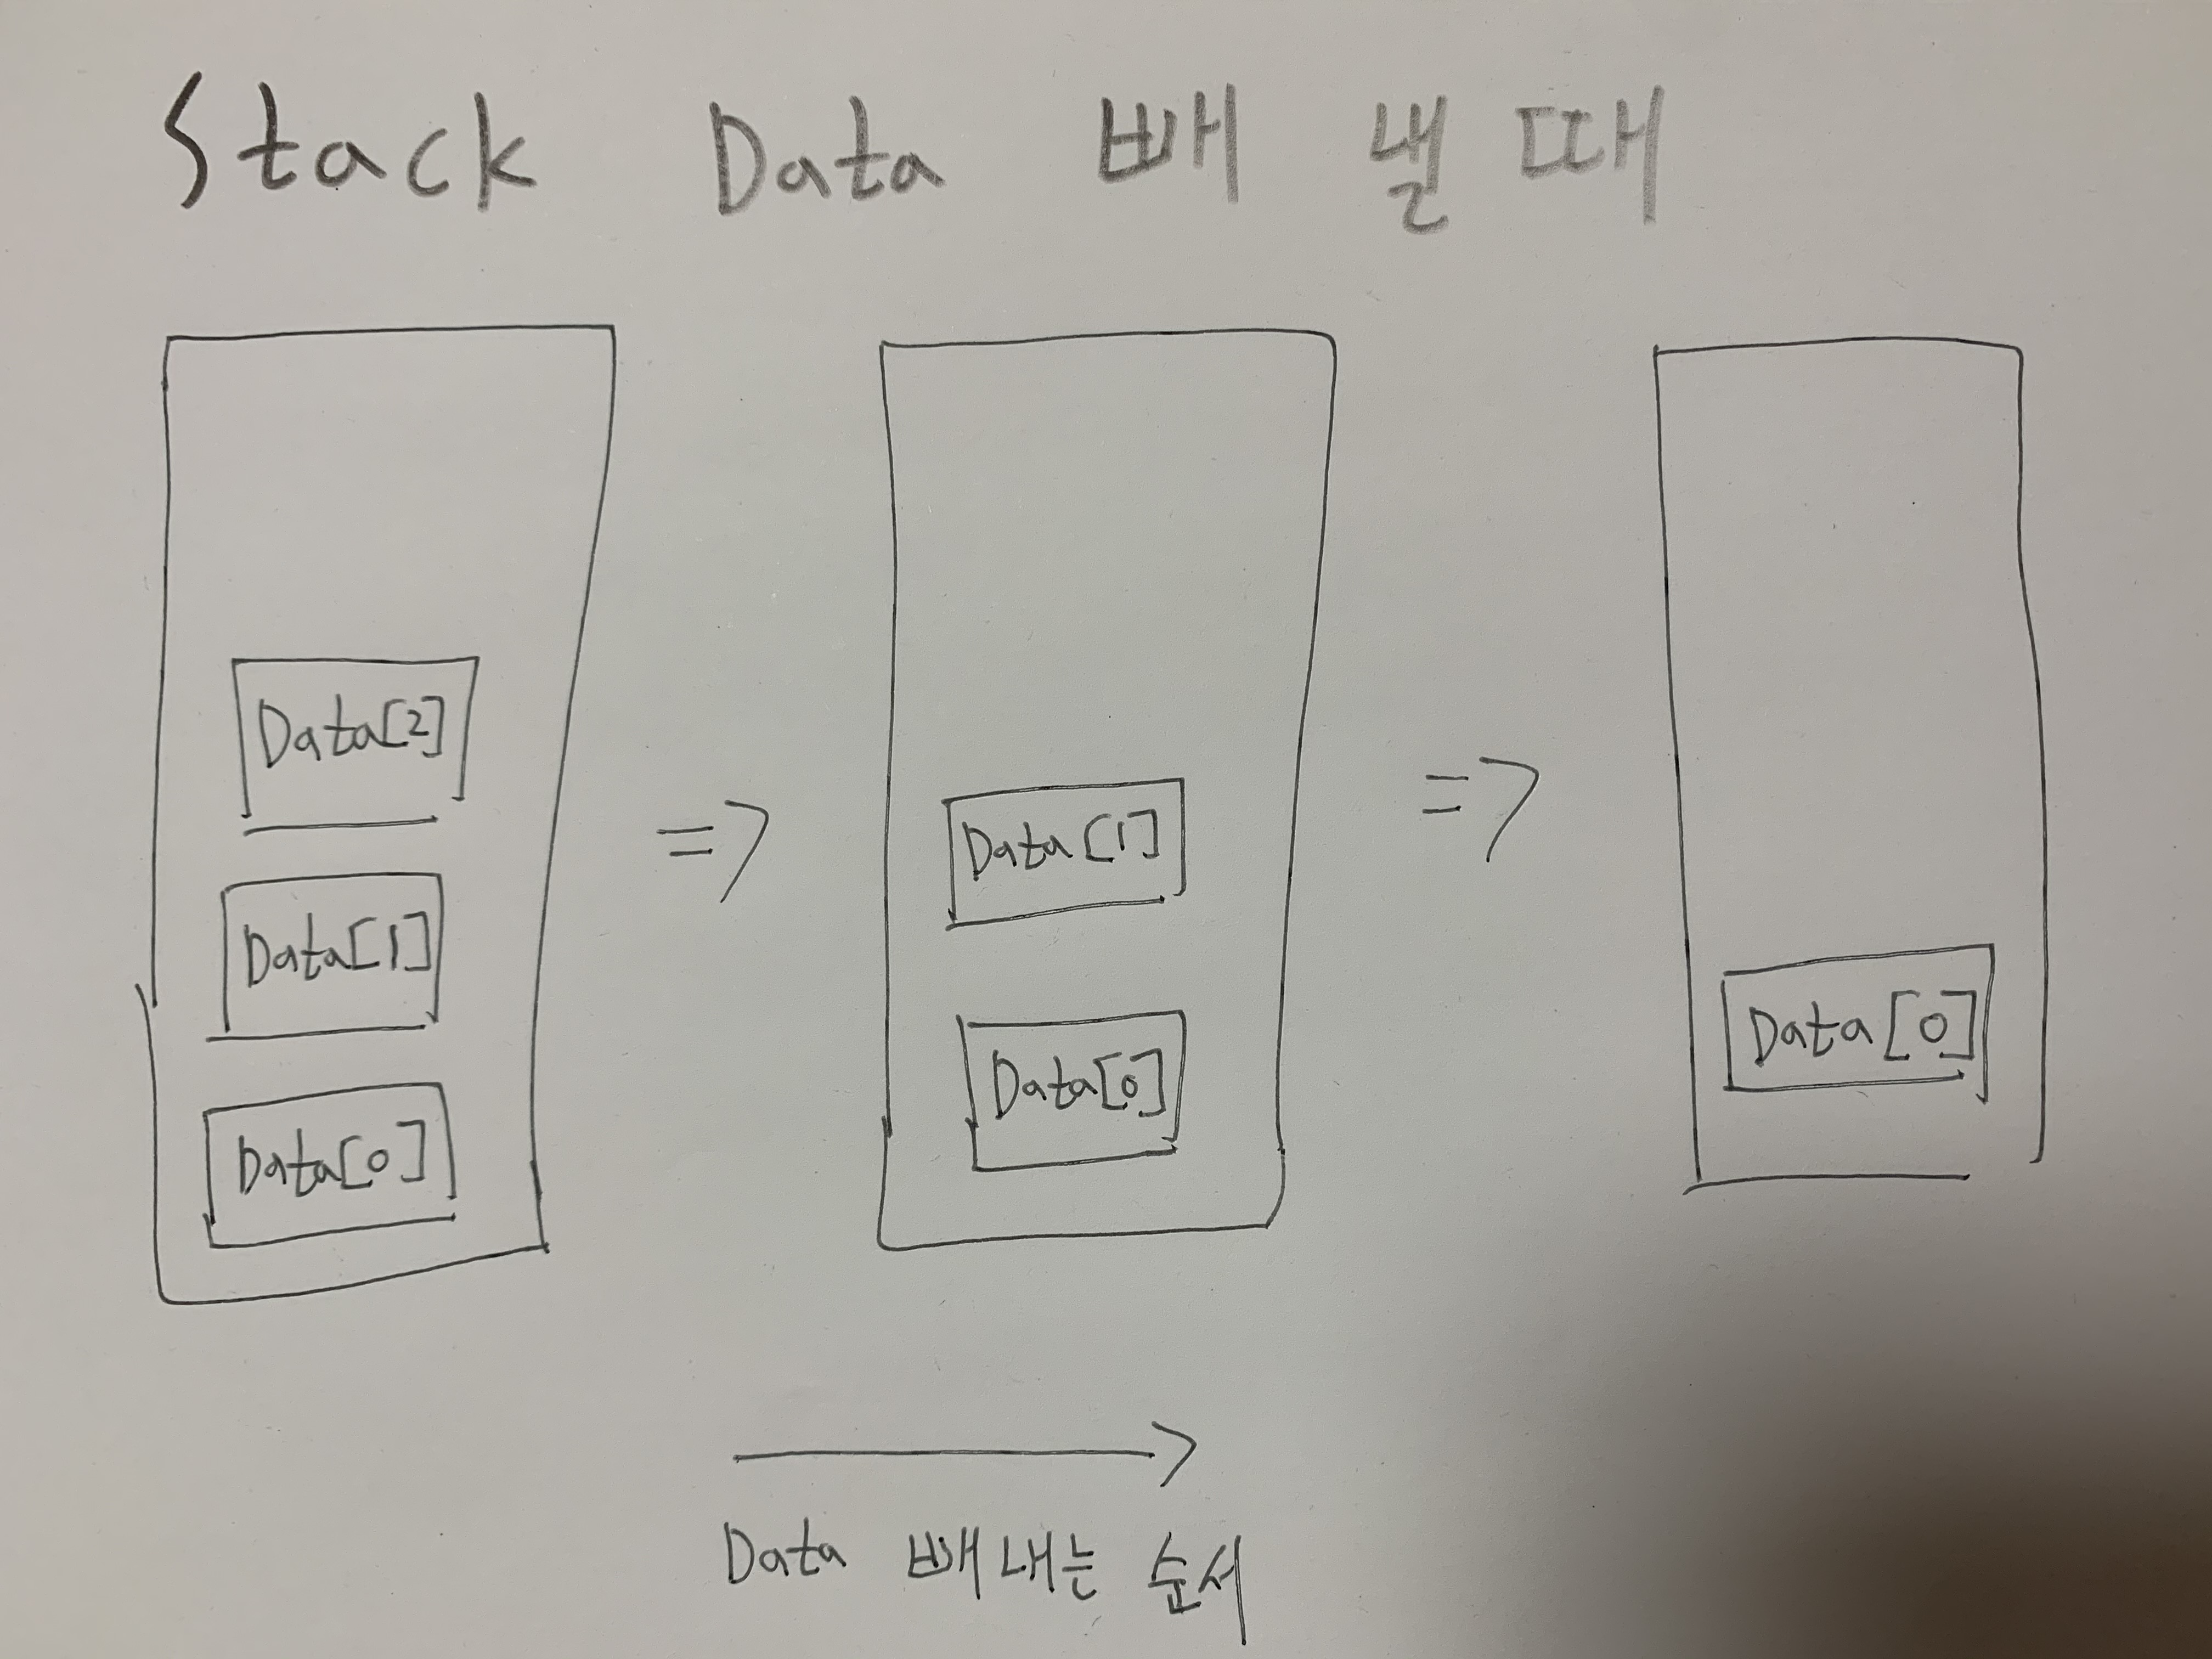 Stack Data 빼 낼 때
Data[2]
Data[1]
Data[0]
=>
Data[1]
Data[0]
=>
Data[0]
Data 빼 내는 순서